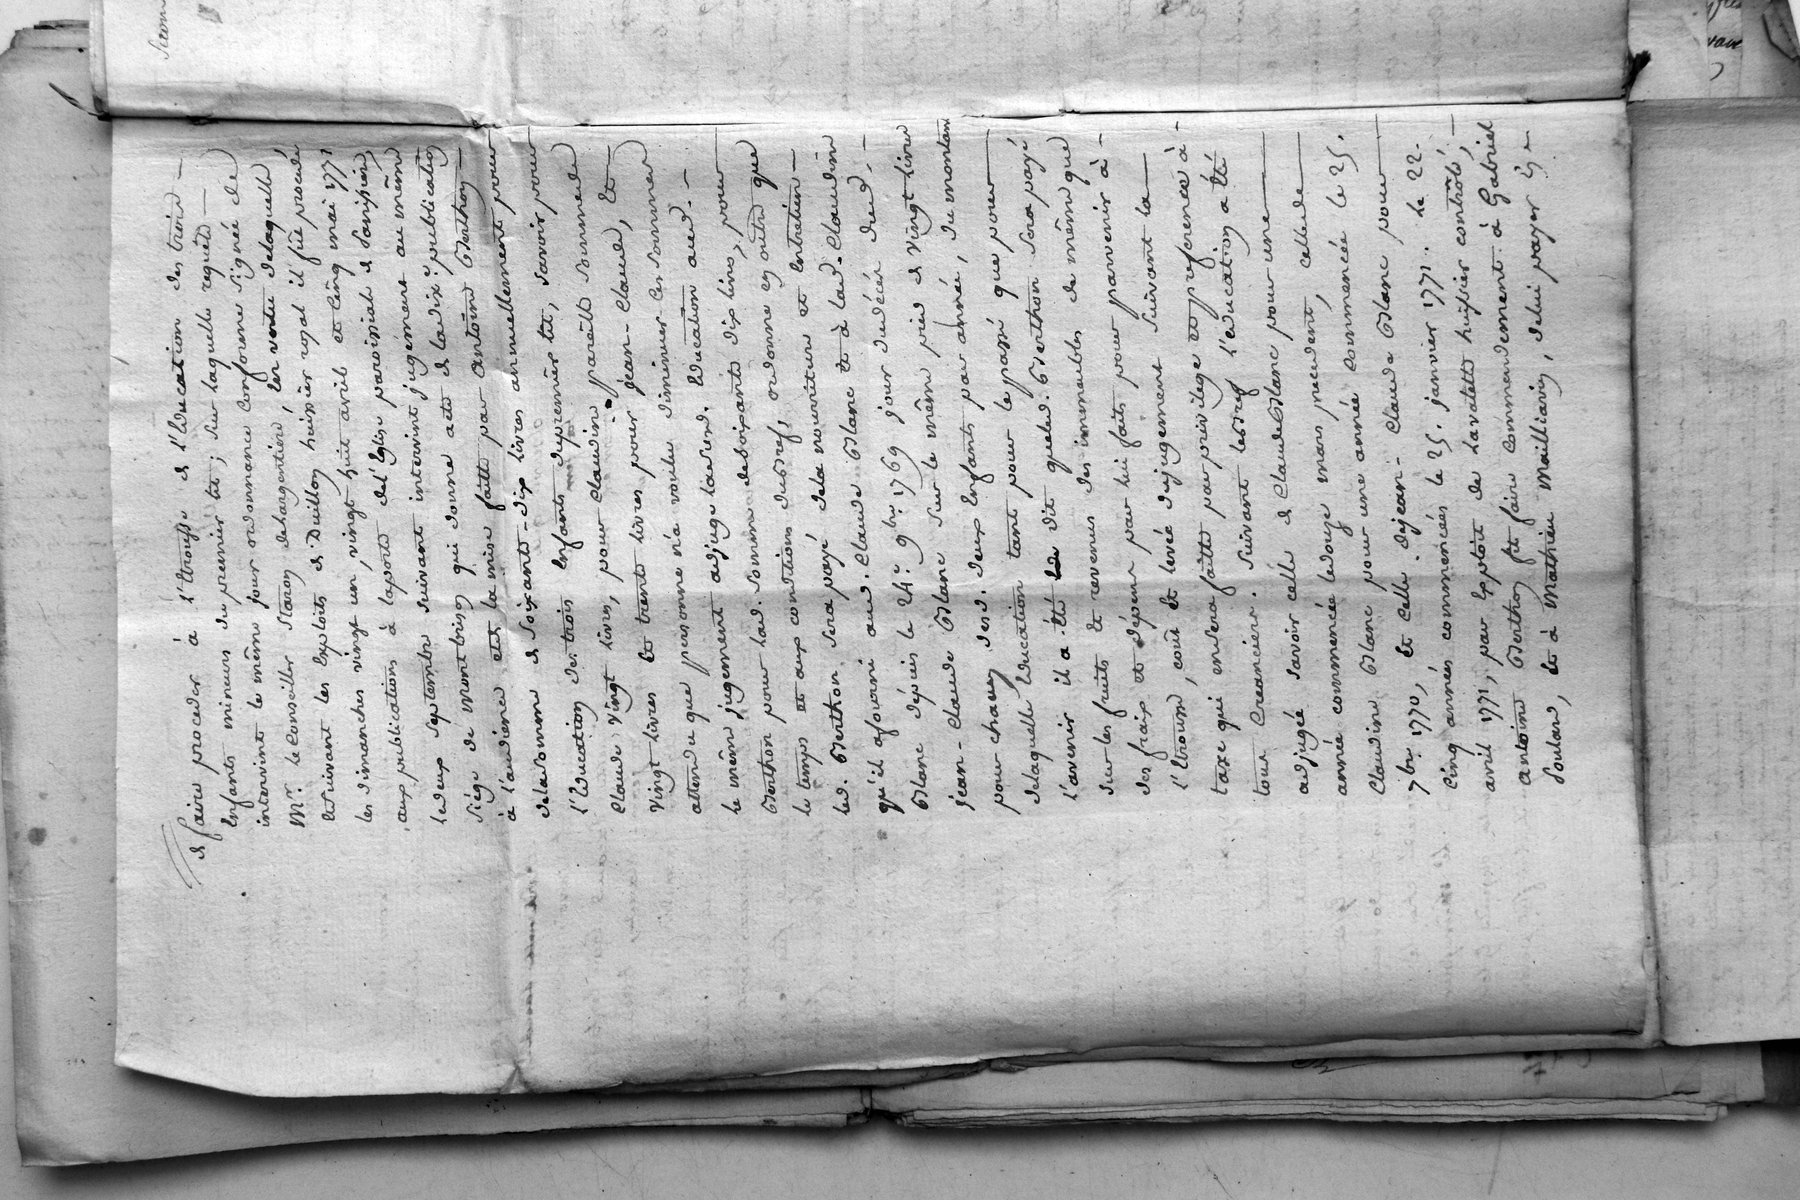 de faire proceder à l'Etrousse de l'Education des trois
Enfants mineurs du premier lit; sur laquelle requête
intervint le même jour ordonnance conforme signée de
Mr. le Conseiller Staron delargentiere, En vertu delaquelle,
Et suivant les Exploits de huissier royal il fût procedé
les dimanches vingt un, vingt huit avril et Cinq mai 1771
aux publications à laporte de l'Eglise paroissiale de
le deux septembre suivant intervint jugement au même
siège de montbrison qui donne acte de lad. publication
à l'audience et de la mise faitte par antoine Berthon
delasomme de soixante-dix livres annuellement pour
l'Education des trois Enfants dupremier lit, savoir pour
Claude vingt livres, pour Claudine pareille somme de
vingt livres Et trente livres pour jean-Claude, Et
attendu que personne n'a voulu diminuer Ces sommes
le même jugement adjuge lad. Education aud.
Berthon pour lad. somme de soixante dix livres, pour
le temps et aux conditions ordonne en outre que
led. Berthon sera payé dela nourriture et Entretien
qu'il a fourni aud. Claude Blanc et à lad. Claudine
Blanc depuis le 24e 9bre 1769 jour du décés dud.
jean-Claude Blanc sur le même pied de vingt livres
pour chacun desd. deux Enfants par année, du montant
delaquelle Education tant pour le passé que pour
l'avenir il a été dit queled. Berthon sera payé
sur les fruits et revenus des immeubles de même que
des fraix et dépens par lui faits pour parvenir à
l'Etrousse, coût et levée dujugement suivant la
taxe qui ensera faitte par privilege et preference à
tous Creanciers. suivant l'education a été
adjugée savoir celle de Claude Blanc pour une
année commencée le douze mars precedent, celle de
Claudine Blanc pour une année Commencée le 25.
7bre 1770, Et Celle dejean-Claude Blanc pour
Cinq années commencées le 25. janvier 1771. Le 22.
avril 1771, par Exploit de huissier contrôlé,
antoine Berthon fit faire Commendement à Gabriel
Soulard, Et à Mathieu delui payer